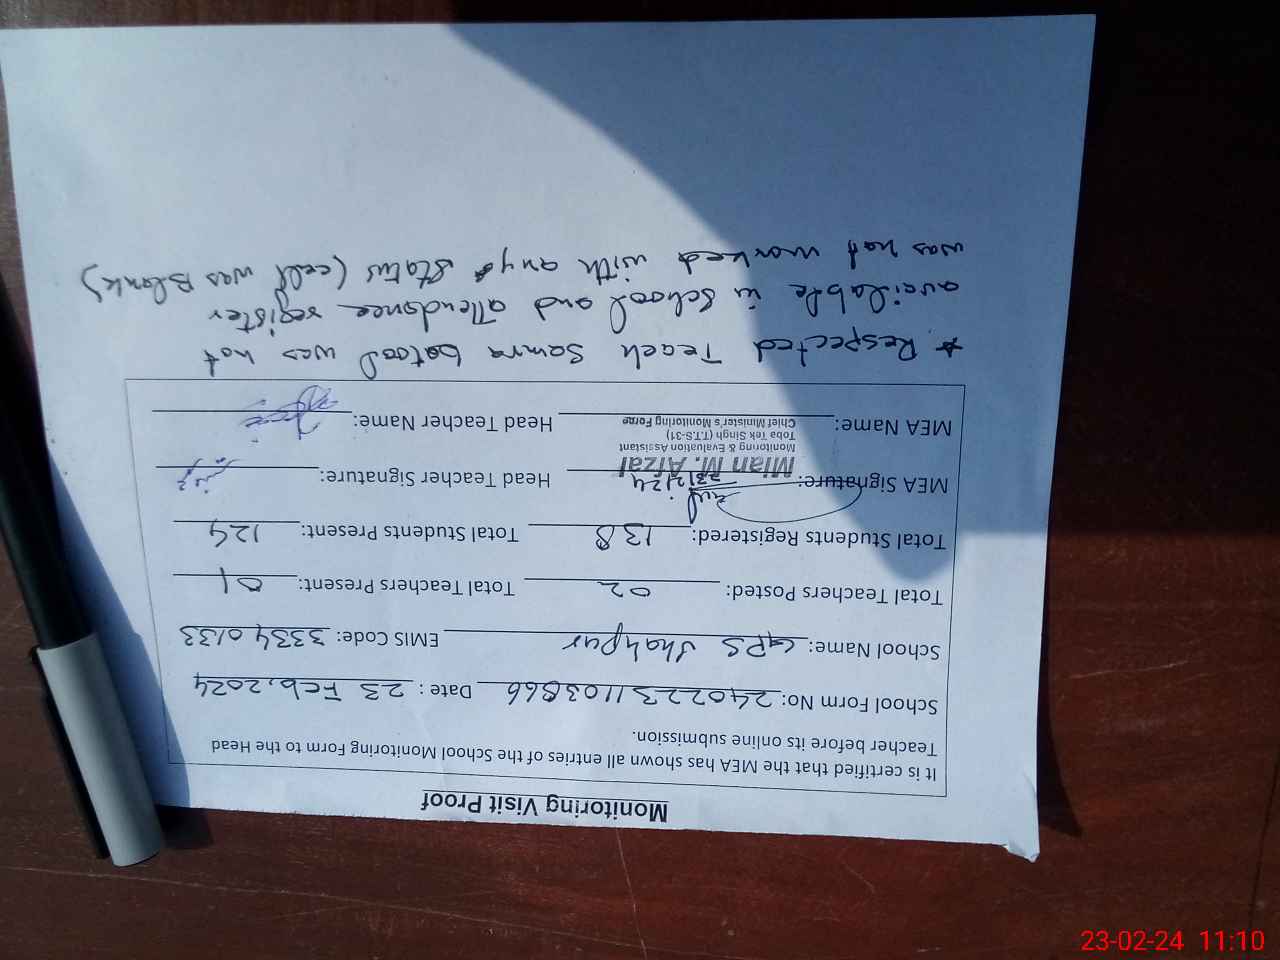 Monitoring Visit Proof
It is certified that the MEA has shown all entries of the School Monitoring Form to the Head
Teacher before its online submission.
School Form No: 2402231103866 Date: 23 Feb, 2024
School Name: GPS Shahpur EMIS Code: 33340133
Total Teachers Posted: 02 Total Teachers Present: 01
Total Students Registered: 138 Total Students Present: 124
MEA Signature: 23/2/24 Head Teacher Signature:
Mian M. Afzal
Monitoring & Evaluation Assistant
Toba Tek Singh (T.T.S-31)
Chief Minister's Monitoring Force
MEA Name: Head Teacher Name:
* Respected Teach Samra batool was not
available in school and attendance register
was not marked with any status (cell was Blank)
23-02-24 11:10